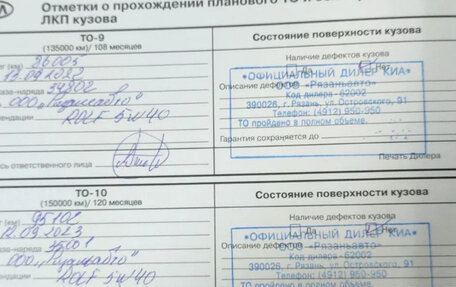 Отметки о прохождении планового ТО и
ЛКП кузова
ТО-9
(135000 км)/ 108 месяцев
Состояние поверхности кузова
(км)
13.09.2022
Наличие дефектов кузова
Да Нет
аза-наряда 34202
Описание дефектов
ООО
ROLF 5W40
*ОФИЦИАЛЬНЫЙ ДИЛЕР КИА*
ООО «Рязаньавто»
Код дилера - 62002
390026, г. Рязань, ул. Островского, 91
Телефон: (4912) 950-950
ТО пройдено в полном объеме.
Гарантия сохраняется до
ответственного лица
Печать Дилера
ТО-10
(150000 км)/ 120 месяцев
Состояние поверхности кузова
(км) 95102
12.09.2023
Наличие дефектов кузова
Да Нет
за-наряда
Описание дефектов
ООО
ROLF 5W40
*ОФИЦИАЛЬНЫЙ ДИЛЕР КИА*
ООО «Рязаньавто»
Код дилера - 62002
390026, г. Рязань, ул. Островского, 91
Телефон: (4912) 950-950
ТО пройдено в полном объеме.